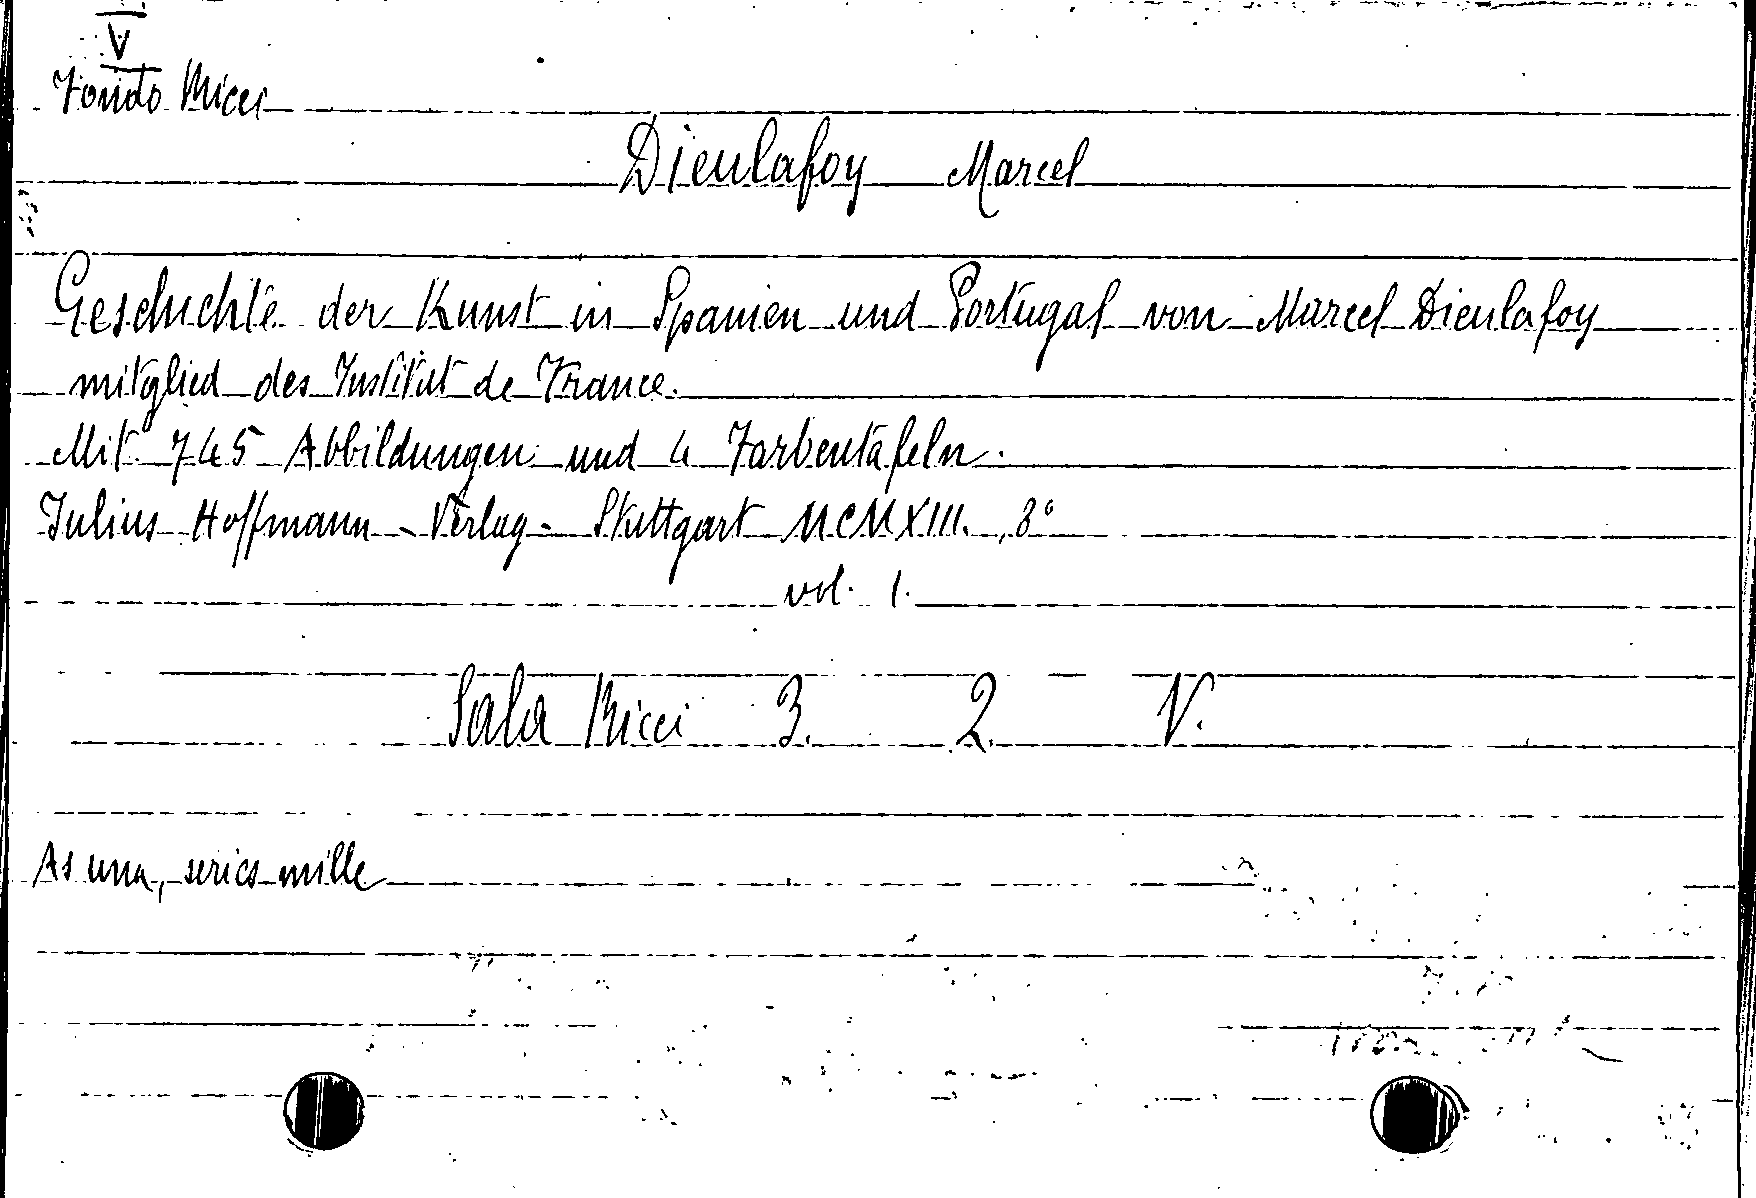 V
Fondo Ricci
Dieulafoy Marcel
Geschichte der Kunst in Spanien und Portugal von Marcel Dieulafoy
mitglied des Institut de France.
Mit 745 Abbildungen und 4 Farbentafeln.
Julius Hoffmann - Verlag - Stuttgart MCMXIII. 8°
vol. 1.
Sala Ricci 3. 2. V.
As una, series mille